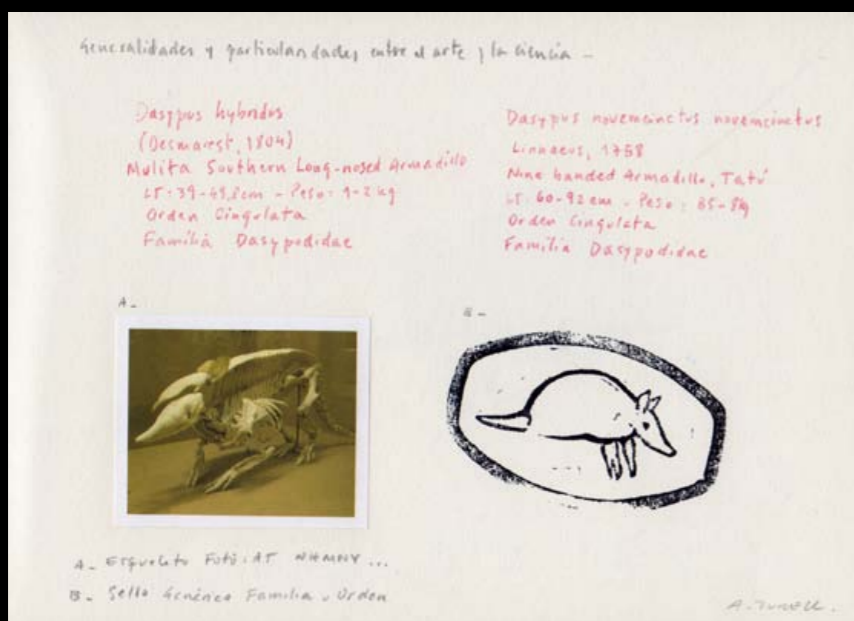 Generalidades y particularidades entre el arte y la ciencia -
Dasypus hybridus
(Desmarest, 1804)
Mulita Southern Long-nosed Armadillo
LT: 39-49,8cm - Peso: 1-2 kg
Orden Cingulata
Familia Dasypodidae
Dasypus novemcinctus novemcinctus
Linnaeus, 1758
Nine banded Armadillo, Tatú
LT: 60-92 cm - Peso: 35-8kg
Orden Cingulata
Familia Dasypodidae
A-
B-
A- Esqueleto Foto: AT NHMNY ...
B- Sello Genérico Familia y Orden
A.